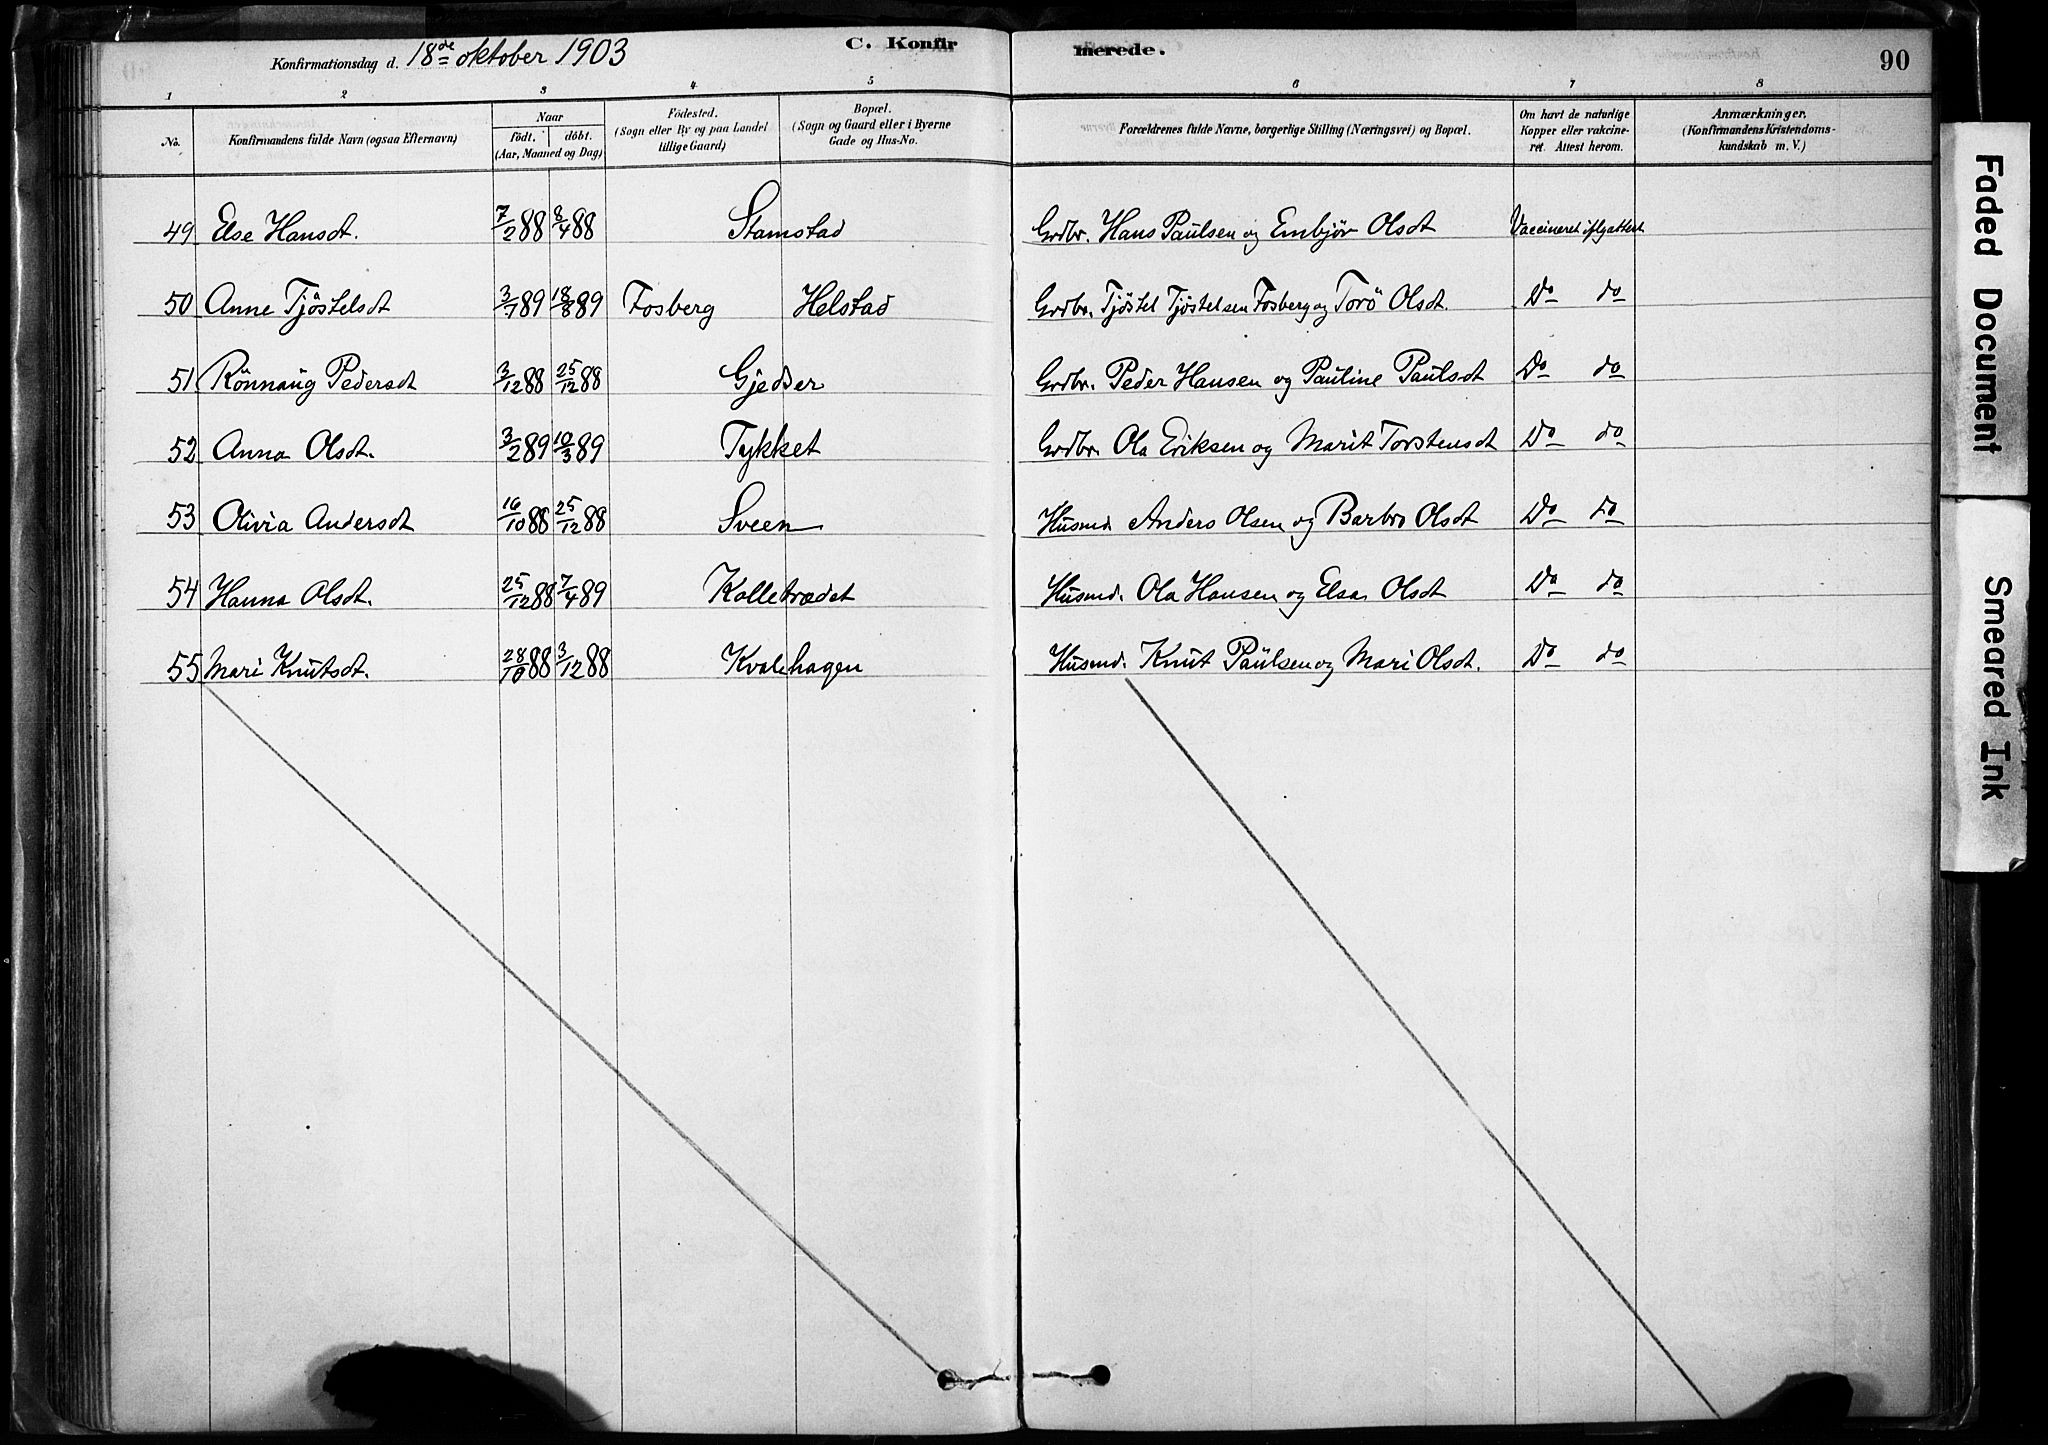 Konfirmationsdag d. 18de oktober 1903 C. Konfir merede. 90
1 2 3 4 5 6 7 8
No. Konfirmandens fulde Navn (ogsaa Efternavn) Naar født. døbt. (Aar, Maaned og Dag) Fødested. (Sogn eller By og paa Landet tillige Gaard) Bopæl. (Sogn og Gaard eller i Byerne Gade og Hus-No. Forældrenes fulde Navne, borgerlige Stilling (Næringsvei) og Bopæl. Om havt de naturlige Kopper eller vakcineret. Attest herom. Anmærkninger. (Konfirmandens Kristendomskundskab m. V.)
49 Else Hansdt. 7/2 88 8/4 88 Stamstad Grdbr. Hans Paulsen og Embjør Olsdt Vaccineret iflg attest
50 Anne Tjøstelsdt 3/7 89 18/8 89 Fosberg Helstad Grdbr. Tjøstel Tjøstelsen Fosberg og Torø Olsdt. Do do
51 Rønnaug Pedersdt 3/12 88 25/12 88 Gjedser Grdbr. Peder Hansen og Pauline Paulsdt Do do
52 Anna Olsdt. 3/2 89 10/3 89 Tykket Grdbr. Ola Eriksen og Marit Torstensdt Do do
53 Olivia Andersdt 16/10 88 25/12 88 Sveen Husmd. Anders Olsen og Barbro Olsdt Do do
54 Hanna Olsdt. 25/12 88 7/4 89 Kolletrædet Husmd. Ola Hansen og Elsa Olsdt Do do
55 Mari Knutsdt. 28/10 88 3/12 88 Kvalehagen Husmd. Knut Paulsen og Mari Olsdt. Do do
Faded Document
Smeared Ink